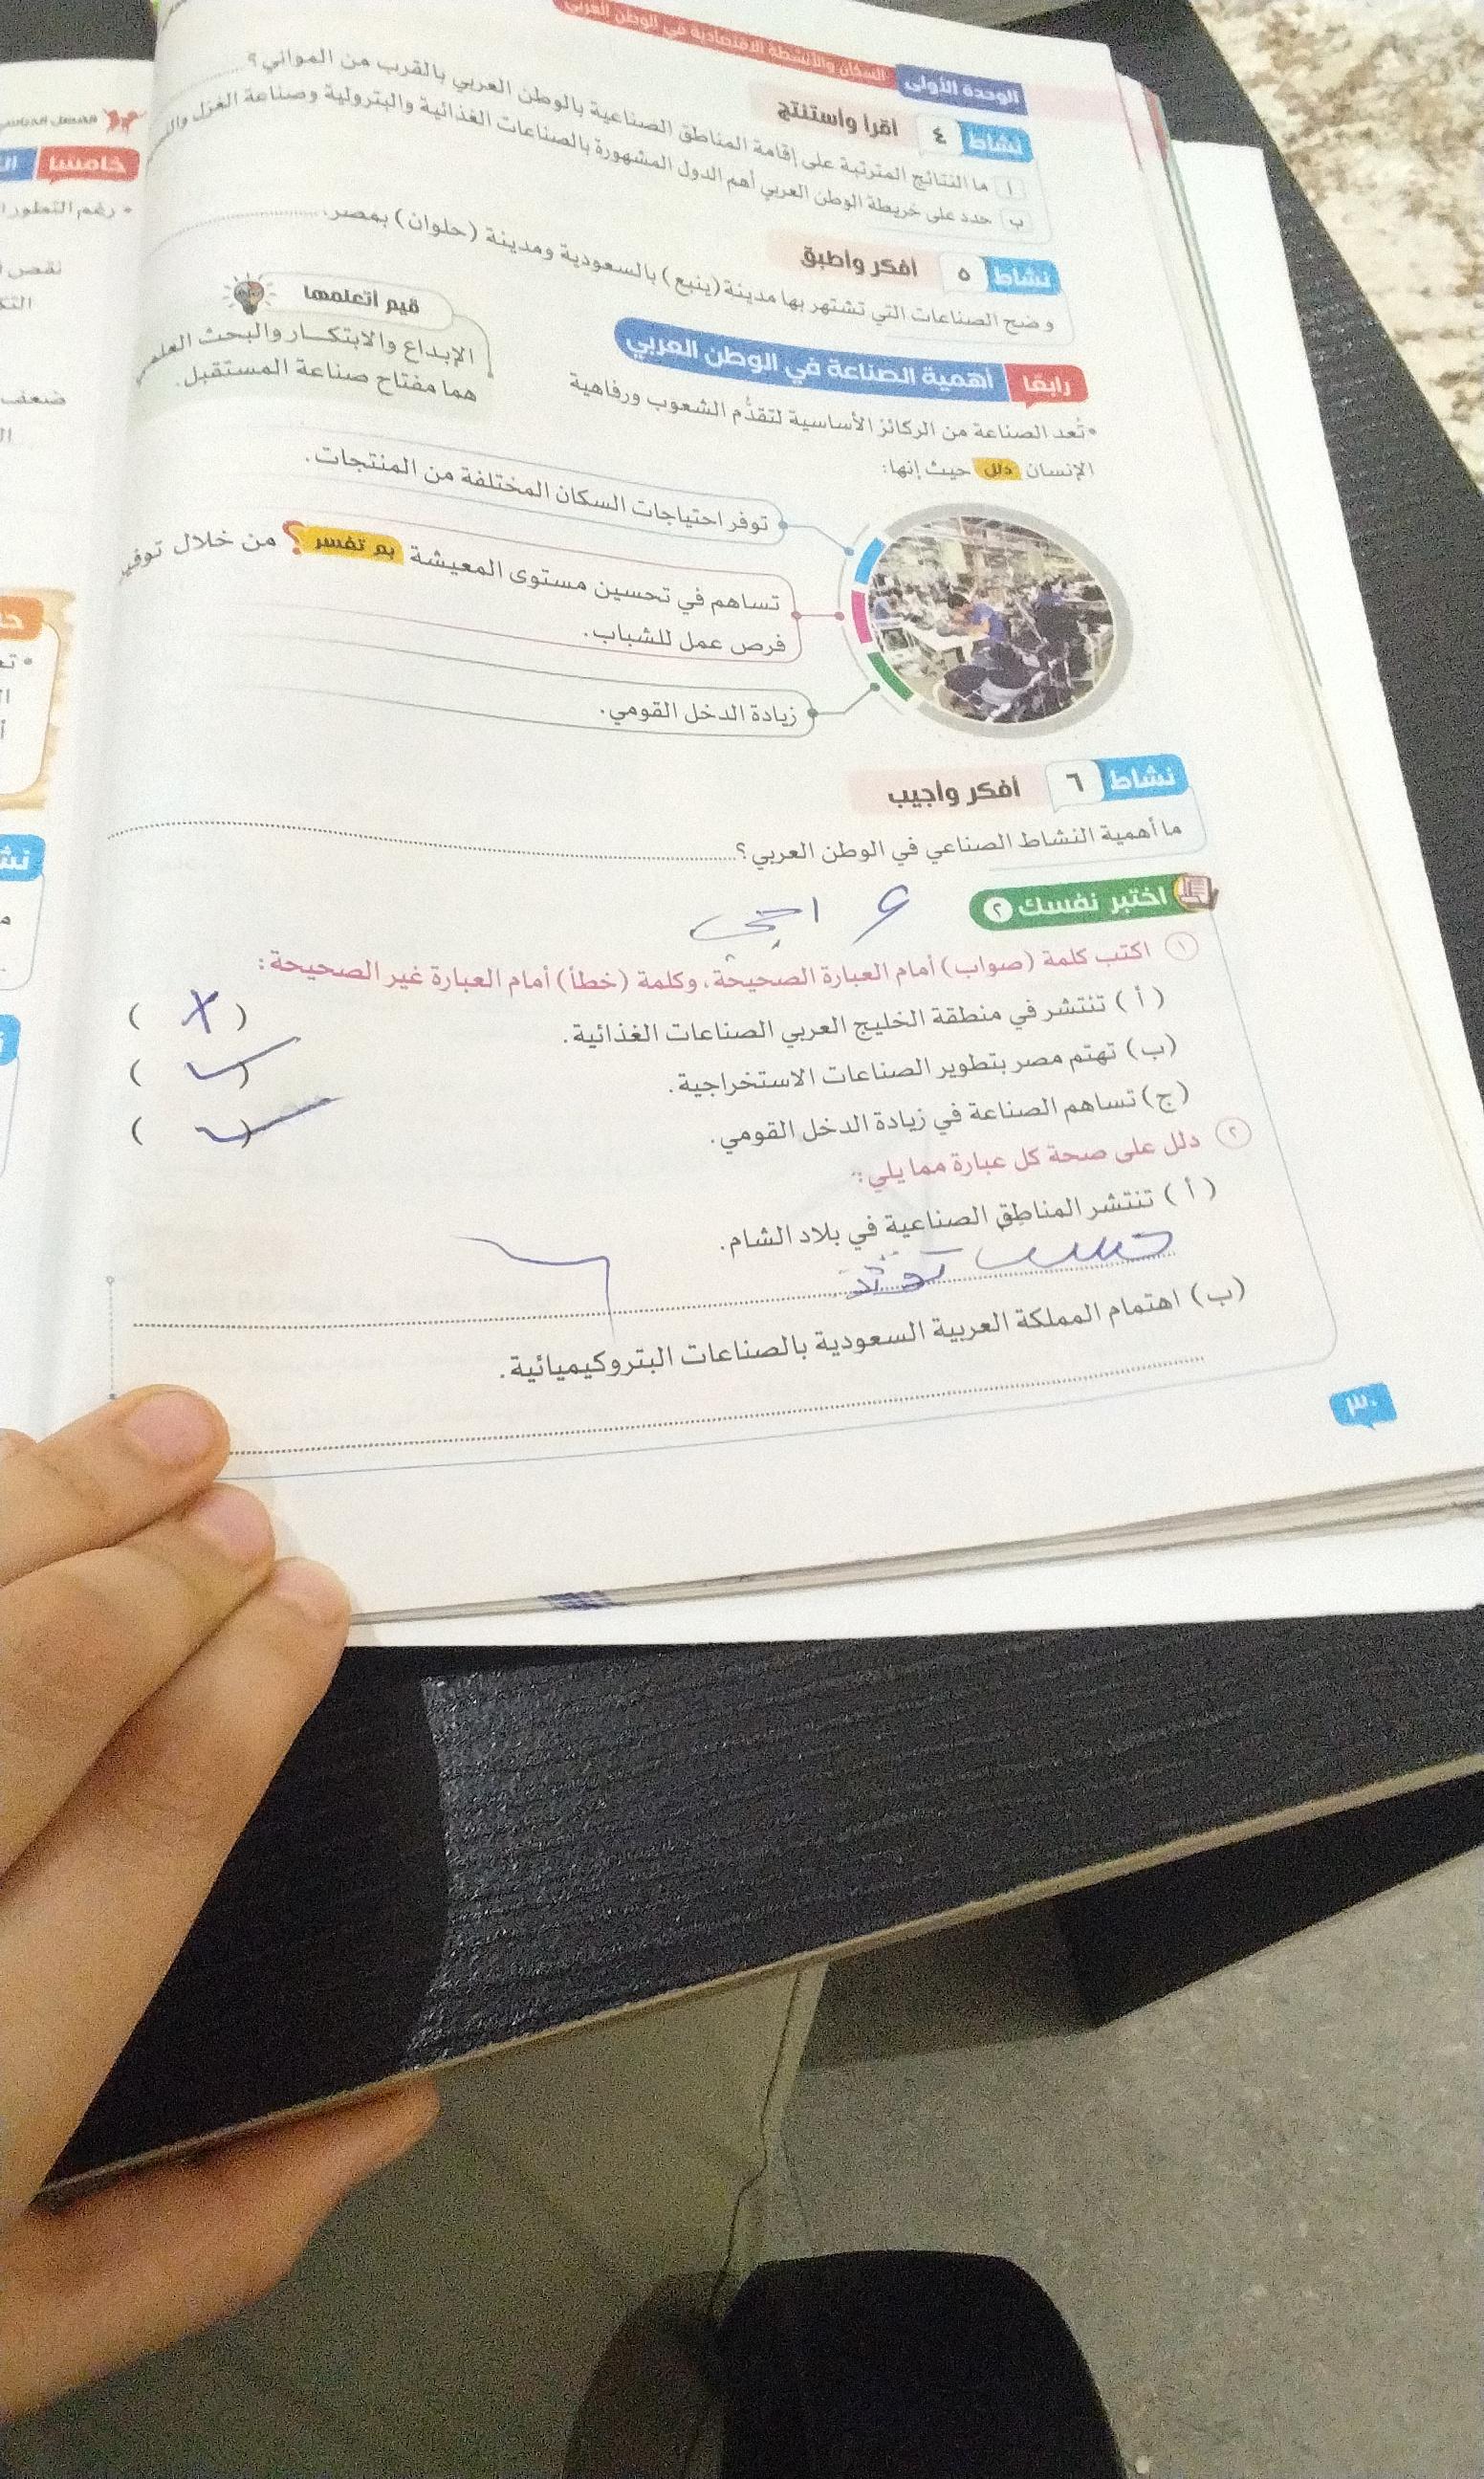 الوحدة الأولى السكان والأنشطة الاقتصادية في الوطن العربي
نشاط ٤ أقرأ وأستنتج
أ ما النتائج المترتبة على إقامة المناطق الصناعية بالوطن العربي بالقرب من الموانئ؟
ب حدد على خريطة الوطن العربي أهم الدول المشهورة بالصناعات الغذائية والبترولية وصناعة الغزل
نشاط ٥ أفكر وأطبق
وضح الصناعات التي تشتهر بها مدينة (ينبع) بالسعودية ومدينة (حلوان) بمصر.
قيم أتعلمها
الإبداع والابتكار والبحث
هما مفتاح صناعة المستقبل.
رابعًا أهمية الصناعة في الوطن العربي
• تُعد الصناعة من الركائز الأساسية لتقدُّم الشعوب ورفاهية
الإنسان دلل حيث إنها:
توفر احتياجات السكان المختلفة من المنتجات.
تساهم في تحسين مستوى المعيشة بم تفسر؟ من خلال
فرص عمل للشباب.
زيادة الدخل القومي.
نشاط ٦ أفكر وأجيب
ما أهمية النشاط الصناعي في الوطن العربي؟
اختبر نفسك ٢
١ اكتب كلمة (صواب) أمام العبارة الصحيحة، وكلمة (خطأ) أمام العبارة غير الصحيحة:
(أ) تنتشر في منطقة الخليج العربي الصناعات الغذائية. ( X )
(ب) تهتم مصر بتطوير الصناعات الاستخراجية. ( ✓ )
(ج) تساهم الصناعة في زيادة الدخل القومي. ( ✓ )
٢ دلل على صحة كل عبارة مما يلي:
(أ) تنتشر المناطق الصناعية في بلاد الشام.
(ب) اهتمام المملكة العربية السعودية بالصناعات البتروكيميائية.
٣٠
خامسًا
• رغم التطور
نقص